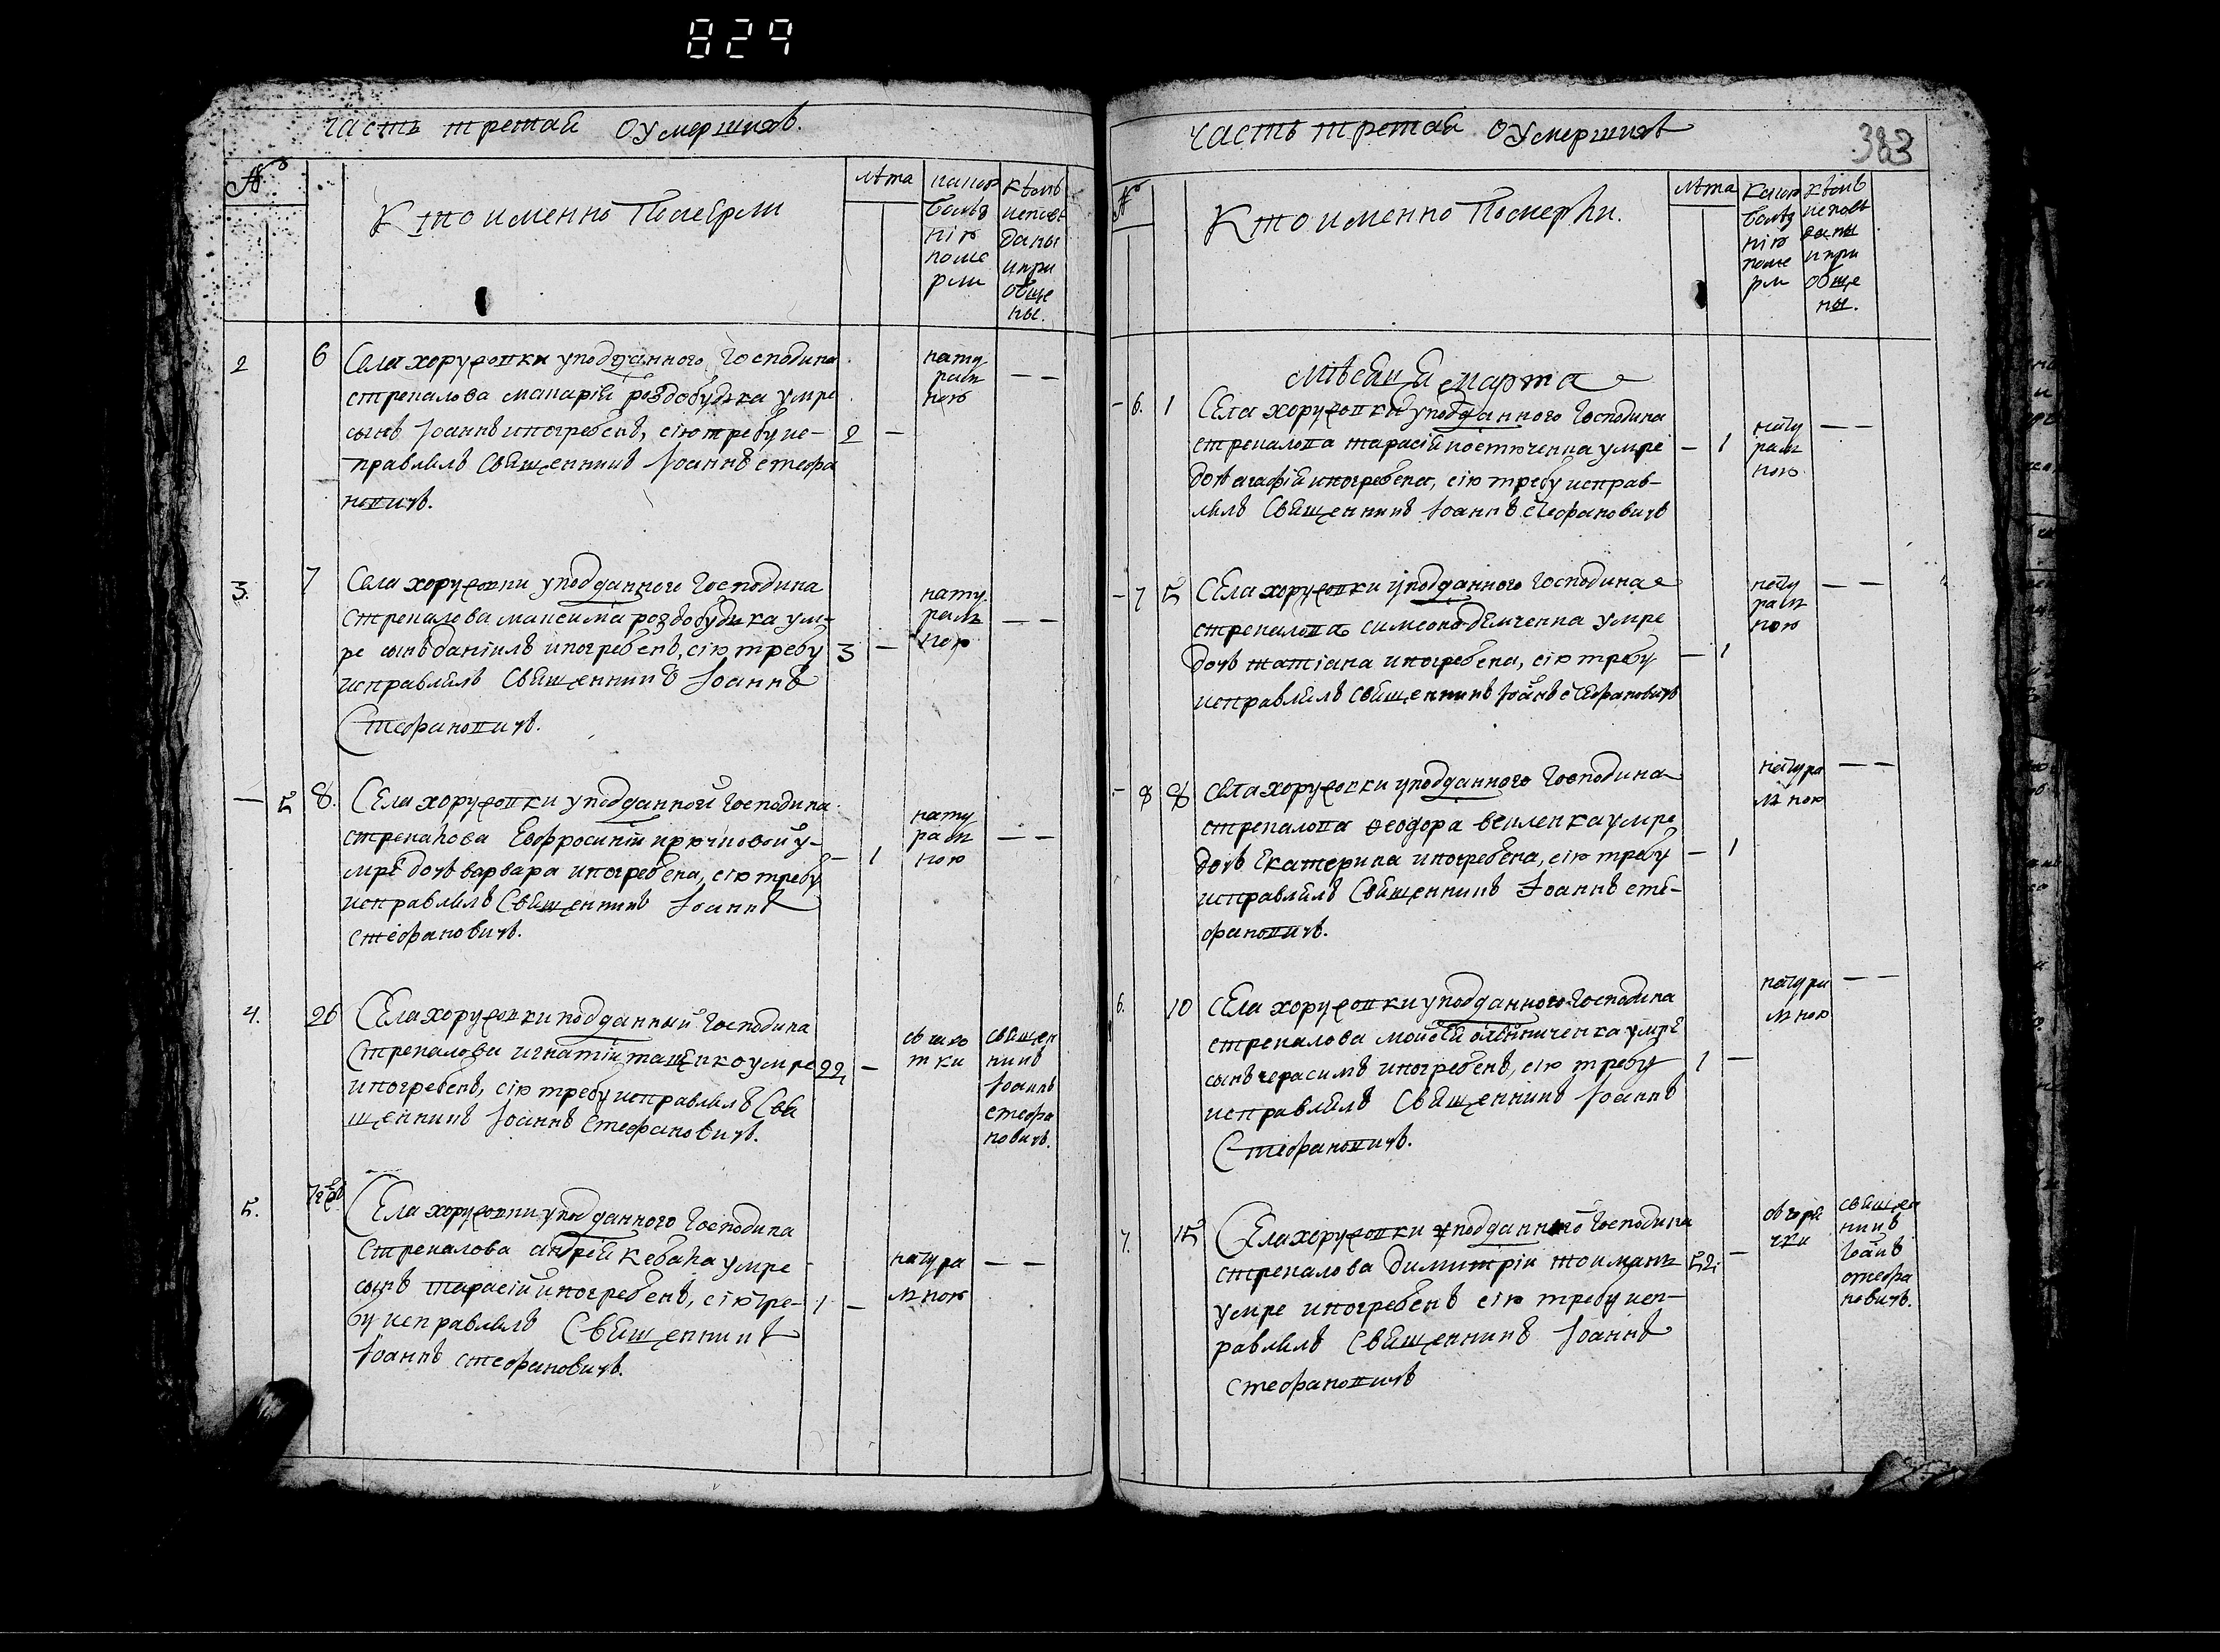 829
часть третая о умерших.
№
кто именно Померли
лѣта
какою болѣзнію померли
кѣмъ исповѣданы и приобщены.
2 6 Села хорушовки уподданного Господина
стрекалова макарія роздобудка умре
сынъ Іоаннъ и погребенъ, сію требу ис-
правлялъ Священникъ Іоаннъ стефа
новичъ.
2 —
натуральною
— —
3. 7 Села хорушовки уподданного Господина
стрекалова максима роздобудка ум-
ре сынъ даніилъ и погребенъ, сію требу
исправлялъ Священникъ Іоаннъ
Стефановичъ.
3 —
натуральною
— —
— 5 8. Села хорушовки уподданной Господина
стрекалова Евфросиніи крючковой у-
мре дочь варвара и погребена, сію требу
исправлялъ Священникъ Іоаннъ
стефановичъ.
— 1
натуральною
— —
4. 26 Села хорушовки подданный Господина
Стрекалова игнатій ташенко умре
и погребенъ, сію требу исправлялъ Свя
щенникъ Іоаннъ Стефановичъ.
22 —
священникъ Іоаннъ стефановичъ.
5. Села хорушовки уподданного Господина
Стрекалова андрея кебала умре
сынъ тарасій и погребенъ, сію тре-
бу исправлялъ Священникъ
Іоаннъ стефановичъ.
1 —
натуральною
— —
часть третая о умерших
383
№
Кто именно Померли.
лѣта
какою болѣзнію померли
кѣмъ исповѣданы и приобщены.
мѣсяца марта
— 6. 1 Села хорушовки уподданного Господина
стрекалова тарасія костюченка умре
дочь агафія и погребена, сію требу исправ-
лялъ Священникъ Іоаннъ стефановичъ
— 1
натуральною
— —
— 7 5 Села хорушовки уподданного Господина
стрекалова симеона демченка умре
дочь татіана и погребена, сію требу
исправлялъ священникъ Іоанъ стефановичъ
— 1
натуральною
— —
— 8 8 села хорушовки уподданного Господина
стрекалова феодора векленка умре
дочь Екатерина и погребена, сію требу
исправлялъ Священникъ Іоаннъ сте-
фановичъ.
— 1
натуральною
— —
6. 10 Села хорушовки уподданного Господина
стрекалова мойсея олейниченка умре
сынъ герасимъ и погребенъ, сію требу
исправлялъ Священникъ Іоаннъ
Стефановичъ.
1 —
натуральною
— —
7. 15 Села хорушовки подданный Господина
стрекалова димитрій
умре и погребенъ сію требу исп-
равлялъ Священникъ Іоаннъ
стефановичъ
52 —
от горячки
священникъ Іоанъ стефановичъ.